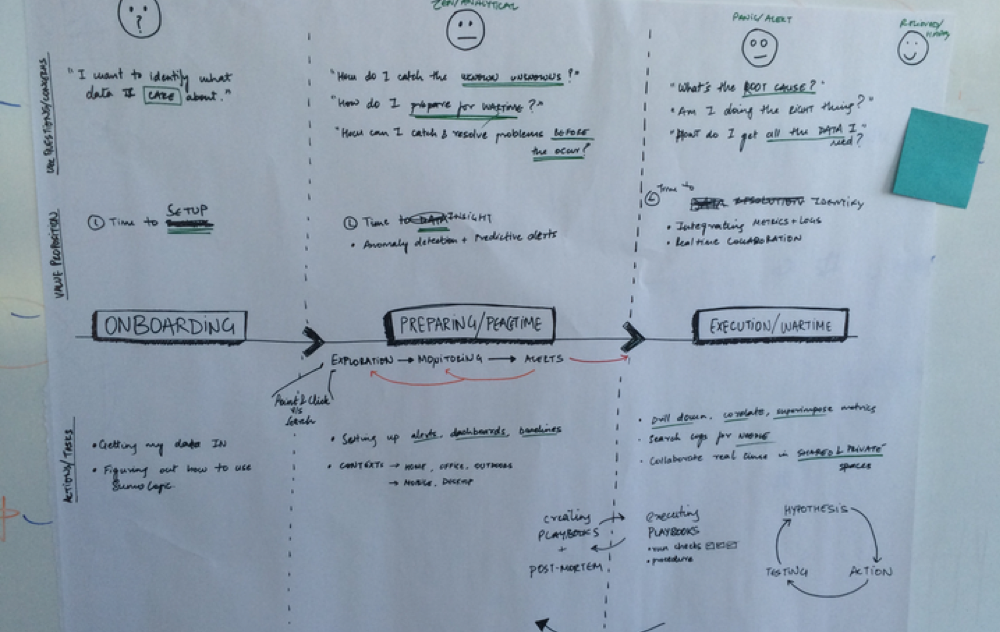 ZEN/ANALYTICAL
PANIC/ALERT
RELIEVED/
?
USE QUESTIONS/CONCERNS
"I want to identify what
data I CARE about."
"How do I catch the UNKNOWN UNKNOWNS?"
"How do I prepare for WARTIME?"
"How can I catch & resolve problems BEFORE
the OCCUR?
"What's the ROOT CAUSE?"
"Am I doing the RIGHT thing?"
"How do I get all the DATA I
need?
VALUE PROPOSITION
Time to SETUP
Time to DATA INSIGHT
• Anomaly detection + Predictive alerts
Time to
RESOLUTION IDENTIFY
• Integrating METRICS + LOGS
• Realtime COLLABORATION
ONBOARDING
PREPARING/PEACETIME
EXECUTION/WARTIME
EXPLORATION → MONITORING → ALERTS
Point & Click
vs
Search
ACTIONS/TASKS
• Getting my data IN
• Figuring out how to use
Sumo Logic.
• Setting up alerts, dashboards, baselines
• CONTEXTS → HOME, OFFICE, OUTDOORS
→ MOBILE, DESKTOP
• Drill down, corelate, superimpose metrics
• Search logs for
• Collaborate real time in SHARED & PRIVATE
spaces
creating
PLAYBOOKS
+
POST-MORTEM
executing
PLAYBOOKS
• run checks
• procedure
HYPOTHESIS
ACTION
TESTING